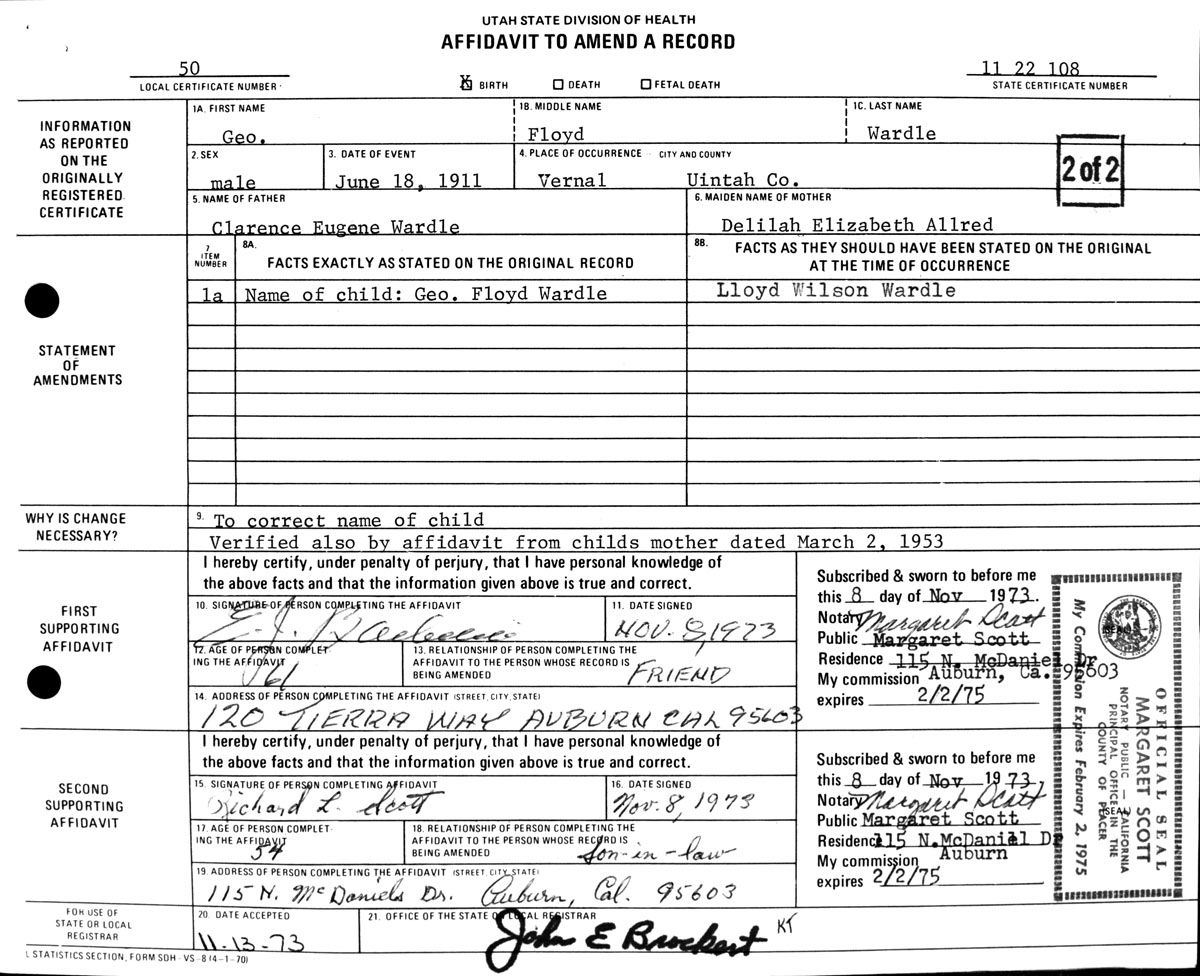 UTAH STATE DIVISION OF HEALTH
AFFIDAVIT TO AMEND A RECORD
50
LOCAL CERTIFICATE NUMBER
X BIRTH ☐ DEATH ☐ FETAL DEATH
11 22 108
STATE CERTIFICATE NUMBER
INFORMATION
AS REPORTED
ON THE
ORIGINALLY
REGISTERED
CERTIFICATE
1A. FIRST NAME
Geo.
1B. MIDDLE NAME
Floyd
1C. LAST NAME
Wardle
2. SEX
male
3. DATE OF EVENT
June 18, 1911
4. PLACE OF OCCURRENCE - CITY AND COUNTY
Vernal Uintah Co.
2 of 2
5. NAME OF FATHER
Clarence Eugene Wardle
6. MAIDEN NAME OF MOTHER
Delilah Elizabeth Allred
STATEMENT
OF
AMENDMENTS
7
ITEM
NUMBER
8A.
FACTS EXACTLY AS STATED ON THE ORIGINAL RECORD
8B. FACTS AS THEY SHOULD HAVE BEEN STATED ON THE ORIGINAL
AT THE TIME OF OCCURRENCE
1a Name of child: Geo. Floyd Wardle
Lloyd Wilson Wardle
WHY IS CHANGE
NECESSARY?
9. To correct name of child
Verified also by affidavit from childs mother dated March 2, 1953
FIRST
SUPPORTING
AFFIDAVIT
I hereby certify, under penalty of perjury, that I have personal knowledge of
the above facts and that the information given above is true and correct.
10. SIGNATURE OF PERSON COMPLETING THE AFFIDAVIT
E. J.
11. DATE SIGNED
NOV. 8, 1973
12. AGE OF PERSON COMPLET-
ING THE AFFIDAVIT
61
13. RELATIONSHIP OF PERSON COMPLETING THE
AFFIDAVIT TO THE PERSON WHOSE RECORD IS
BEING AMENDED
FRIEND
14. ADDRESS OF PERSON COMPLETING THE AFFIDAVIT (STREET, CITY, STATE)
120 TIERRA WAY AUBURN CAL 95603
Subscribed & sworn to before me
this 8 day of Nov 1973.
Notary Margaret Scott
Public Margaret Scott
Residence 115 N. McDaniel Dr
Auburn, Ca. 95603
My commission
expires 2/2/75
SECOND
SUPPORTING
AFFIDAVIT
I hereby certify, under penalty of perjury, that I have personal knowledge of
the above facts and that the information given above is true and correct.
15. SIGNATURE OF PERSON COMPLETING AFFIDAVIT
Richard L. Scott
16. DATE SIGNED
Nov. 8, 1973
17. AGE OF PERSON COMPLET-
ING THE AFFIDAVIT
54
18. RELATIONSHIP OF PERSON COMPLETING THE
AFFIDAVIT TO THE PERSON WHOSE RECORD IS
BEING AMENDED
Son-in-law
19. ADDRESS OF PERSON COMPLETING THE AFFIDAVIT (STREET, CITY, STATE)
115 N. McDaniels Dr. Auburn, Cal. 95603
Subscribed & sworn to before me
this 8 day of Nov 1973,
Notary Margaret Scott
Public Margaret Scott
Residence 115 N.McDaniel Dr
Auburn
My commission
expires 2/2/75
OFFICIAL SEAL
MARGARET SCOTT
NOTARY PUBLIC - CALIFORNIA
PRINCIPAL OFFICE IN THE
COUNTY OF PLACER
My Commission Expires February 2, 1975
FOR USE OF
STATE OR LOCAL
REGISTRAR
20. DATE ACCEPTED
11-13-73
21. OFFICE OF THE STATE OR LOCAL REGISTRAR
John E Brockert KT
L STATISTICS SECTION, FORM SDH-VS-8 (4-1-70)